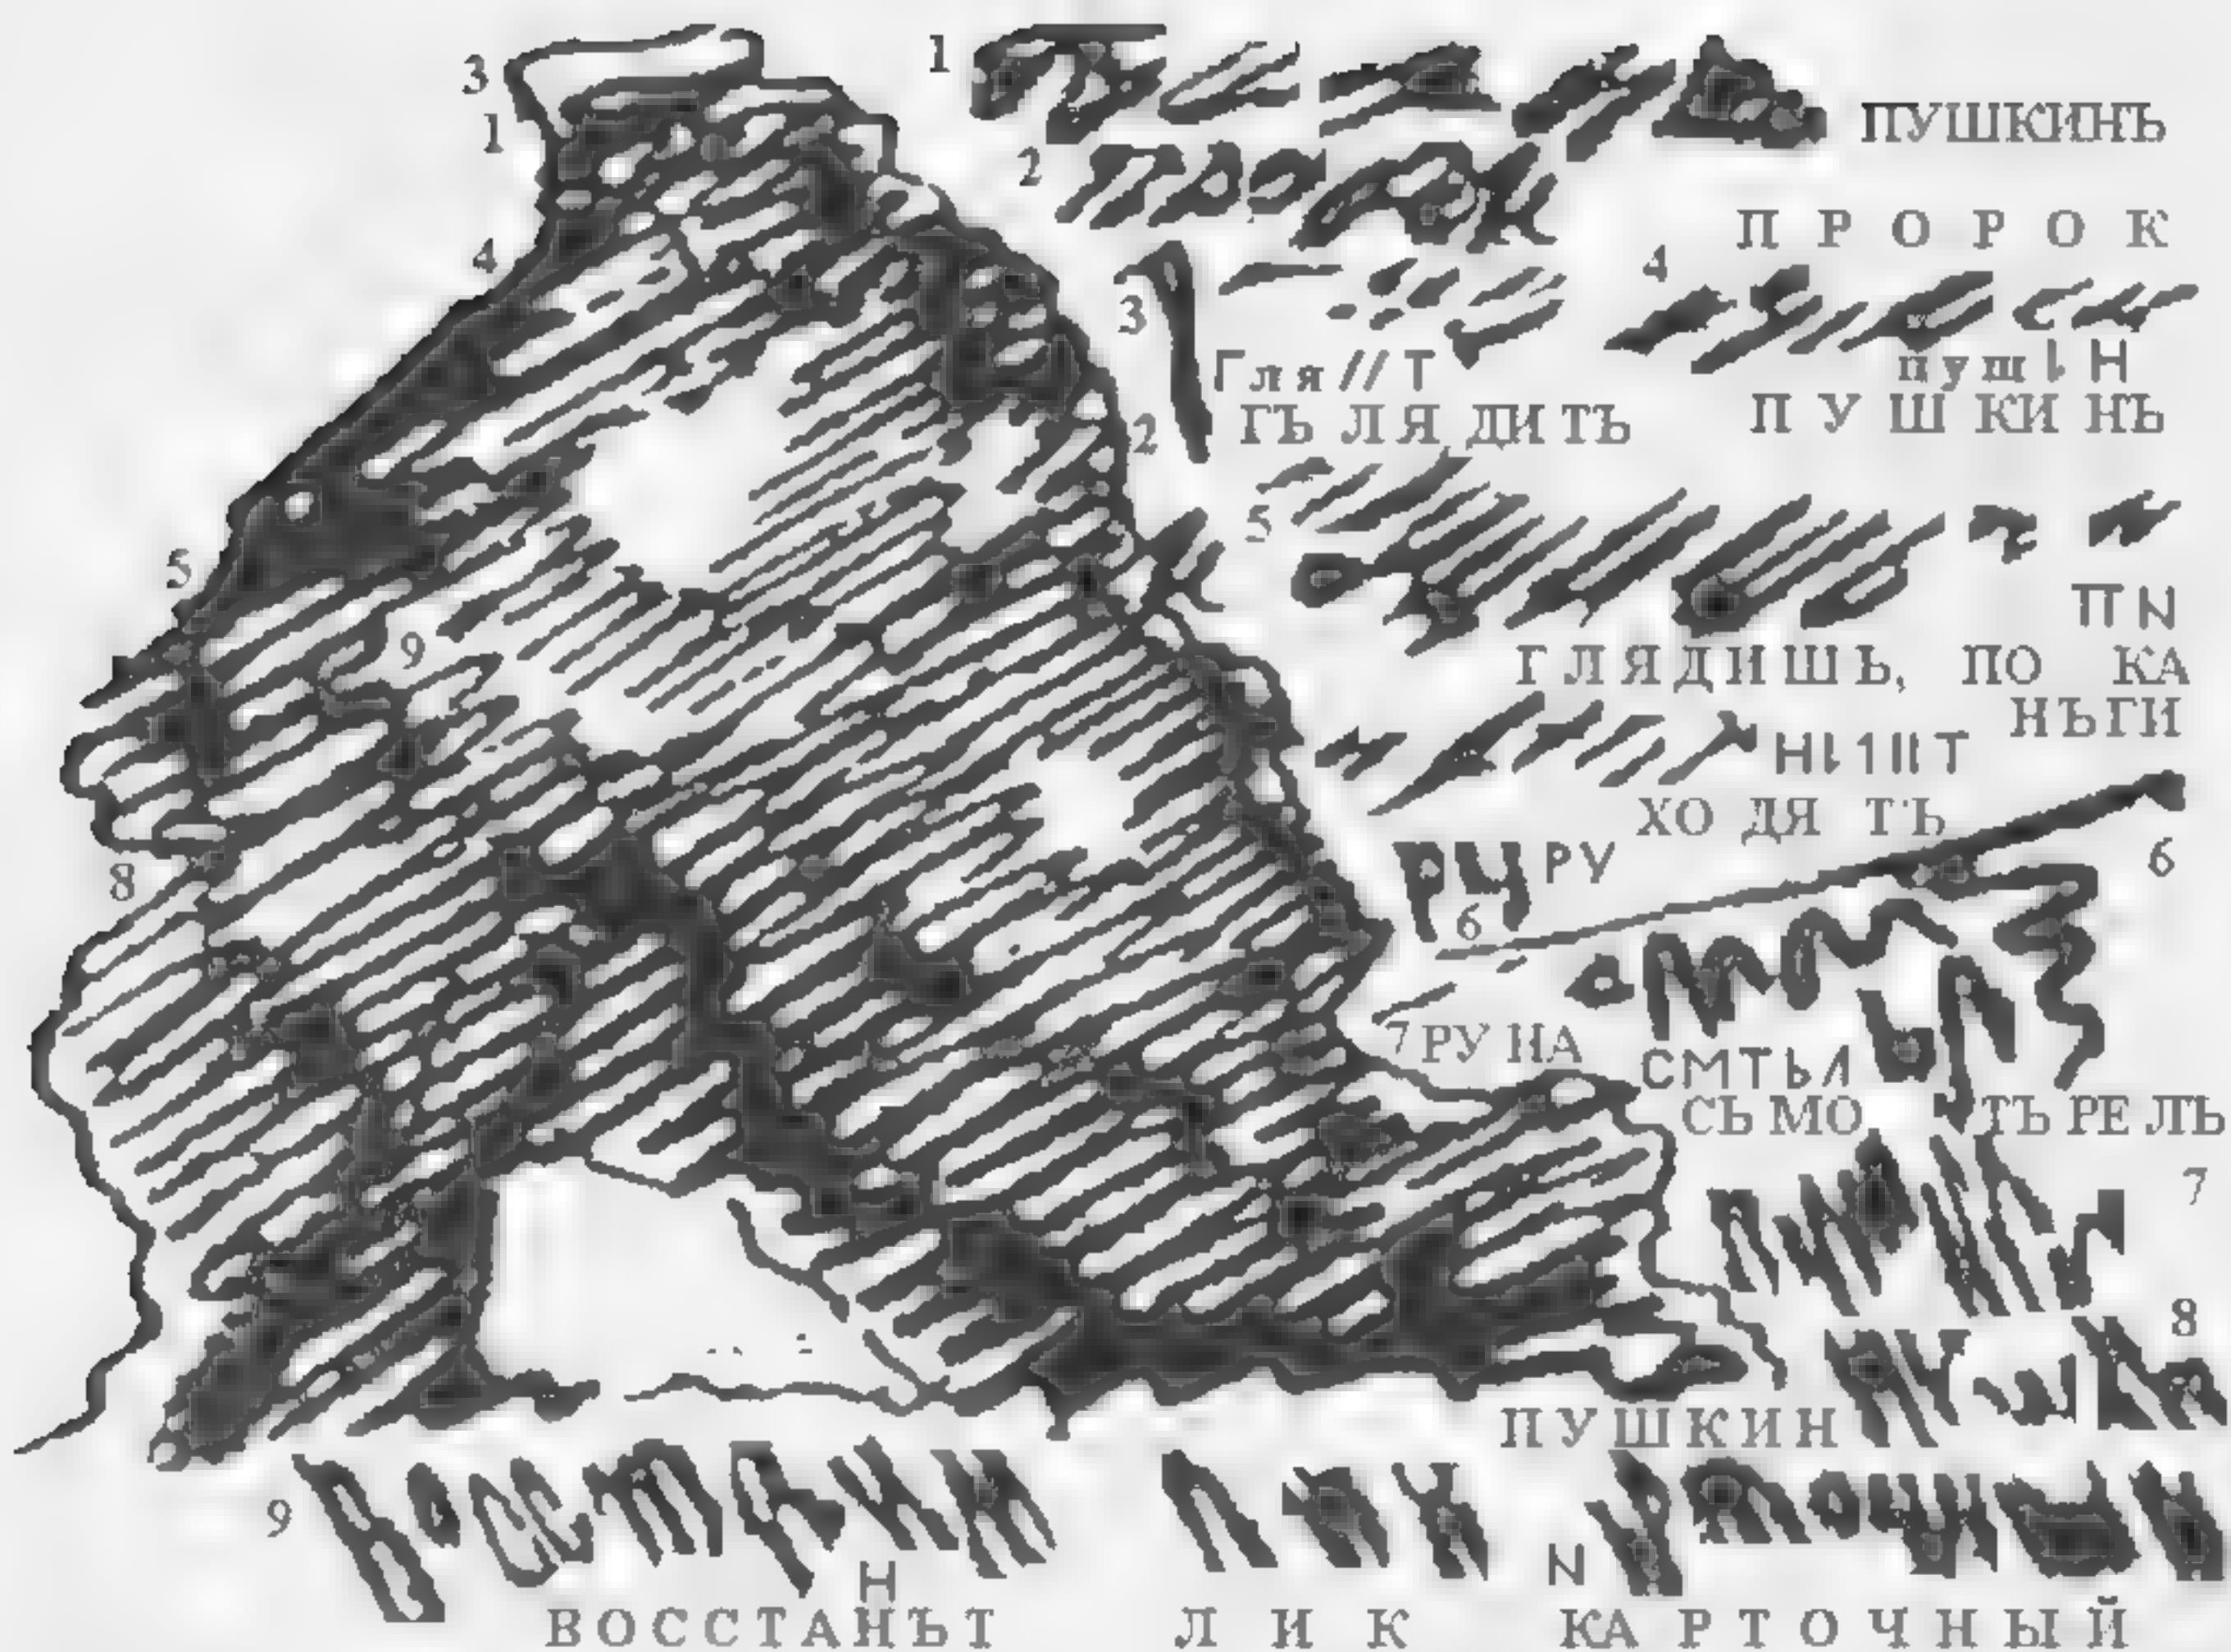 3
1
1 ПУШКИНЪ
2 ПРОРОК
4
3 Гля//Т
ГЪ ЛЯ ДИ ТЪ
4
пуш Н
ПУШКИНЪ
2
5
5
П И
ГЛЯДИШЬ, ПО КА
НЪГИ
9
Т
ХО ДЯ ТЪ
РУ РУ
6
6
8
7 РУ НА
СМТЬЛ
СЬ МО ТЪ РЕ ЛЬ
7
8
ПУШКИН
9
Н
N
ВОССТАНЪТ ЛИК КАРТОЧНЫЙ